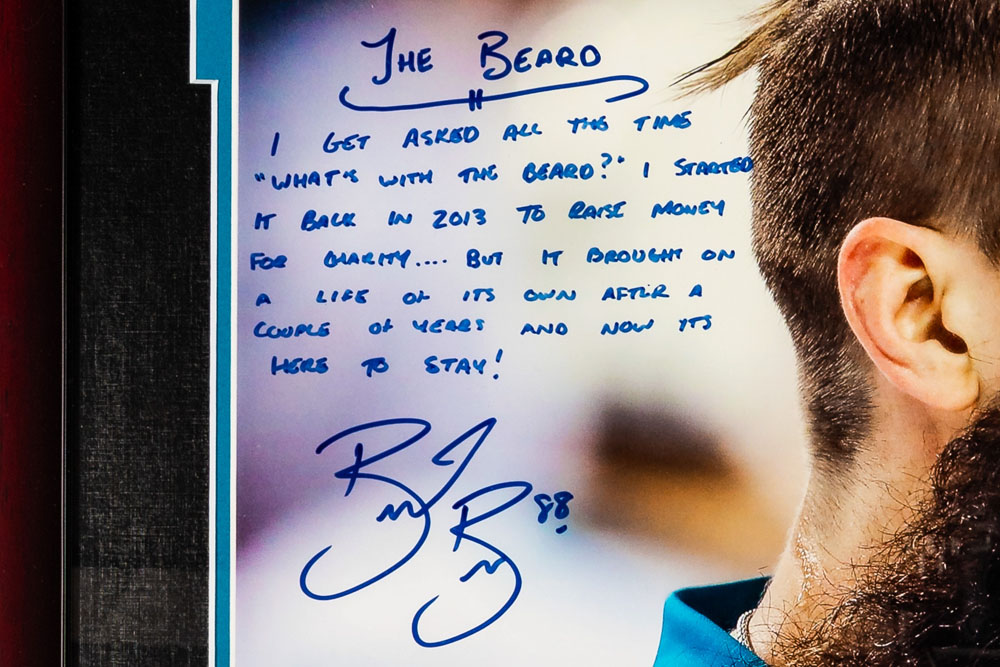 THE BEARD
I GET ASKED ALL THE TIME
"WHAT'S WITH THE BEARD?" I STARTED
IT BACK IN 2013 TO RAISE MONEY
FOR CHARITY.... BUT IT BROUGHT ON
A LIFE OF ITS OWN AFTER A
COUPLE OF YEARS AND NOW ITS
HERE TO STAY!
88